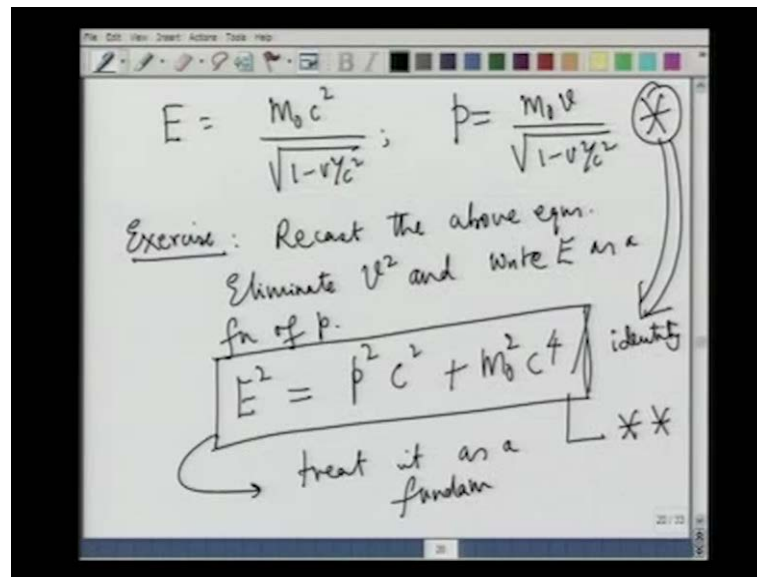 File Edit View Insert Actions Tools Help
B I
E = m₀c² / √(1-v²/c²) ; p = m₀v / √(1-v²/c²) *
Exercise: Recast the above eqns.
Eliminate v² and write E as a
fn of p.
identity
E² = p²c² + m₀²c⁴
**
treat it as a
fundam
20 / 33
20